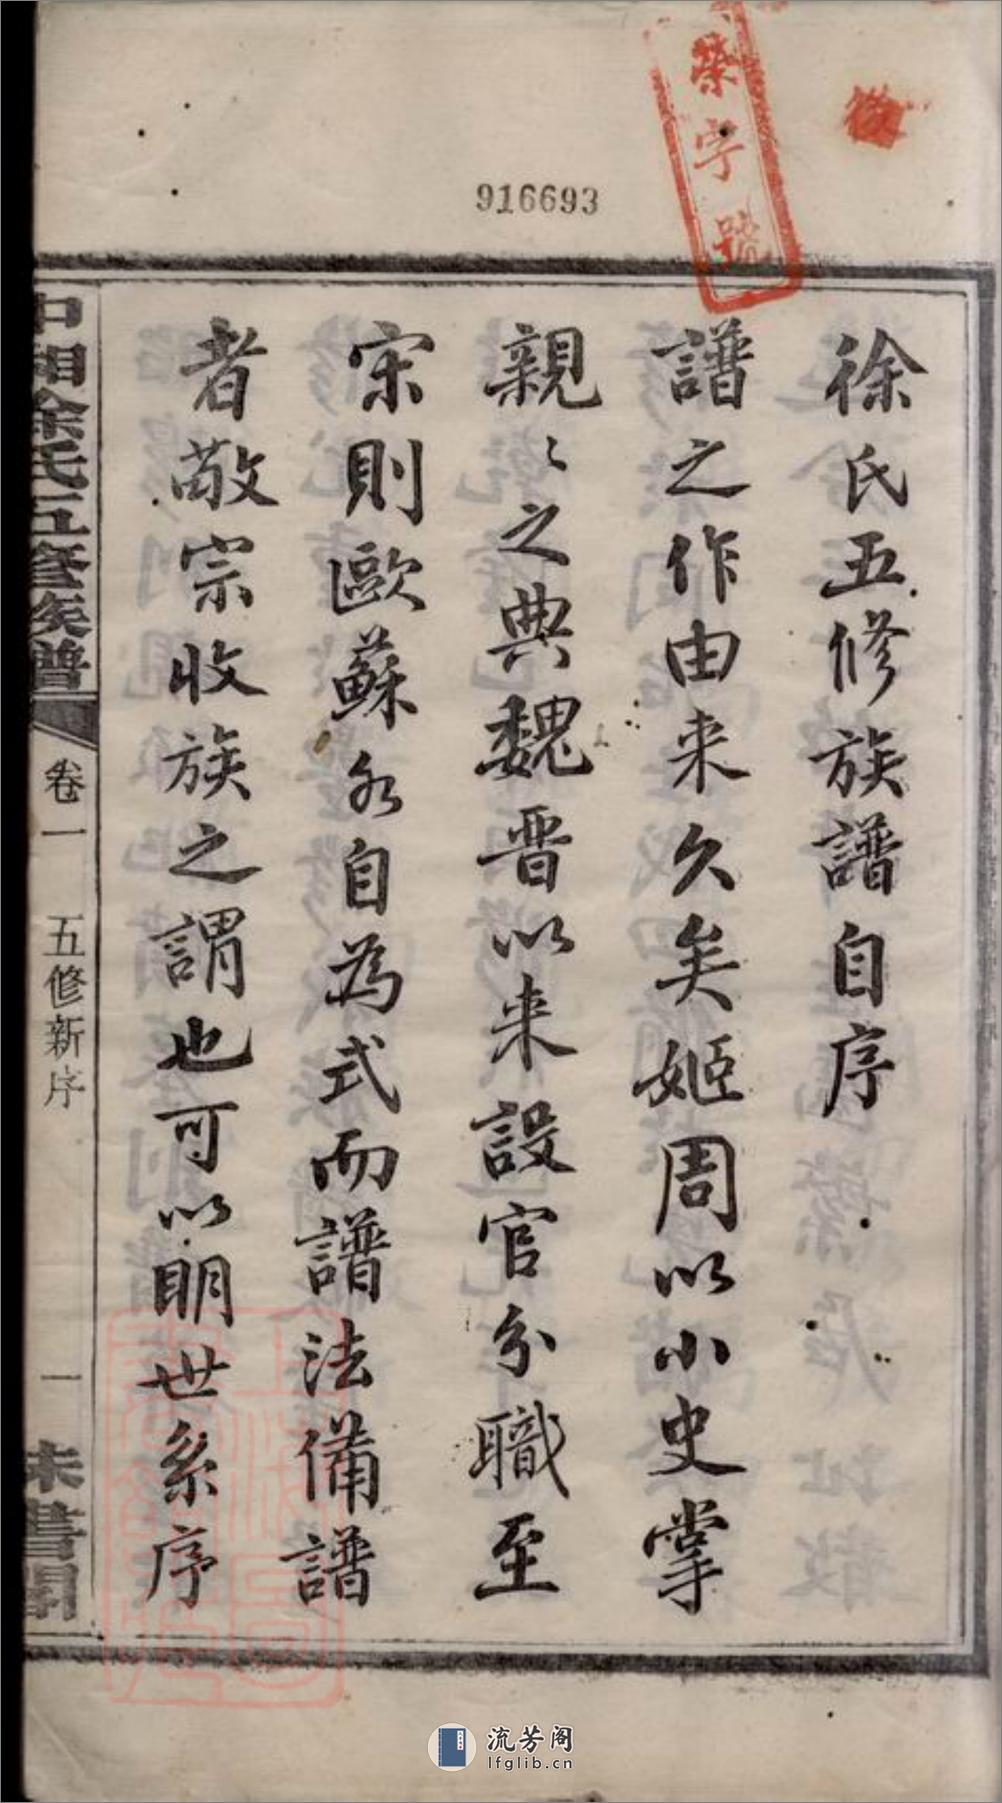 徐氏五修族譜自序
譜之作由来久矣姬周以小史掌
親〻之典魏晋以来設官分職至
宋則歐蘇各自為式而譜法備譜
者敬宗收族之謂也可以明世系序
中湘徐氏五修族譜
卷一
五修新序
一
榮字號
916693
流芳阁
lfglib.cn